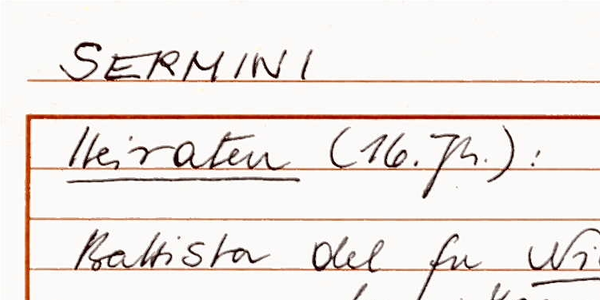 SERMINI
Heiraten (16. Jh.):
Battista del fu